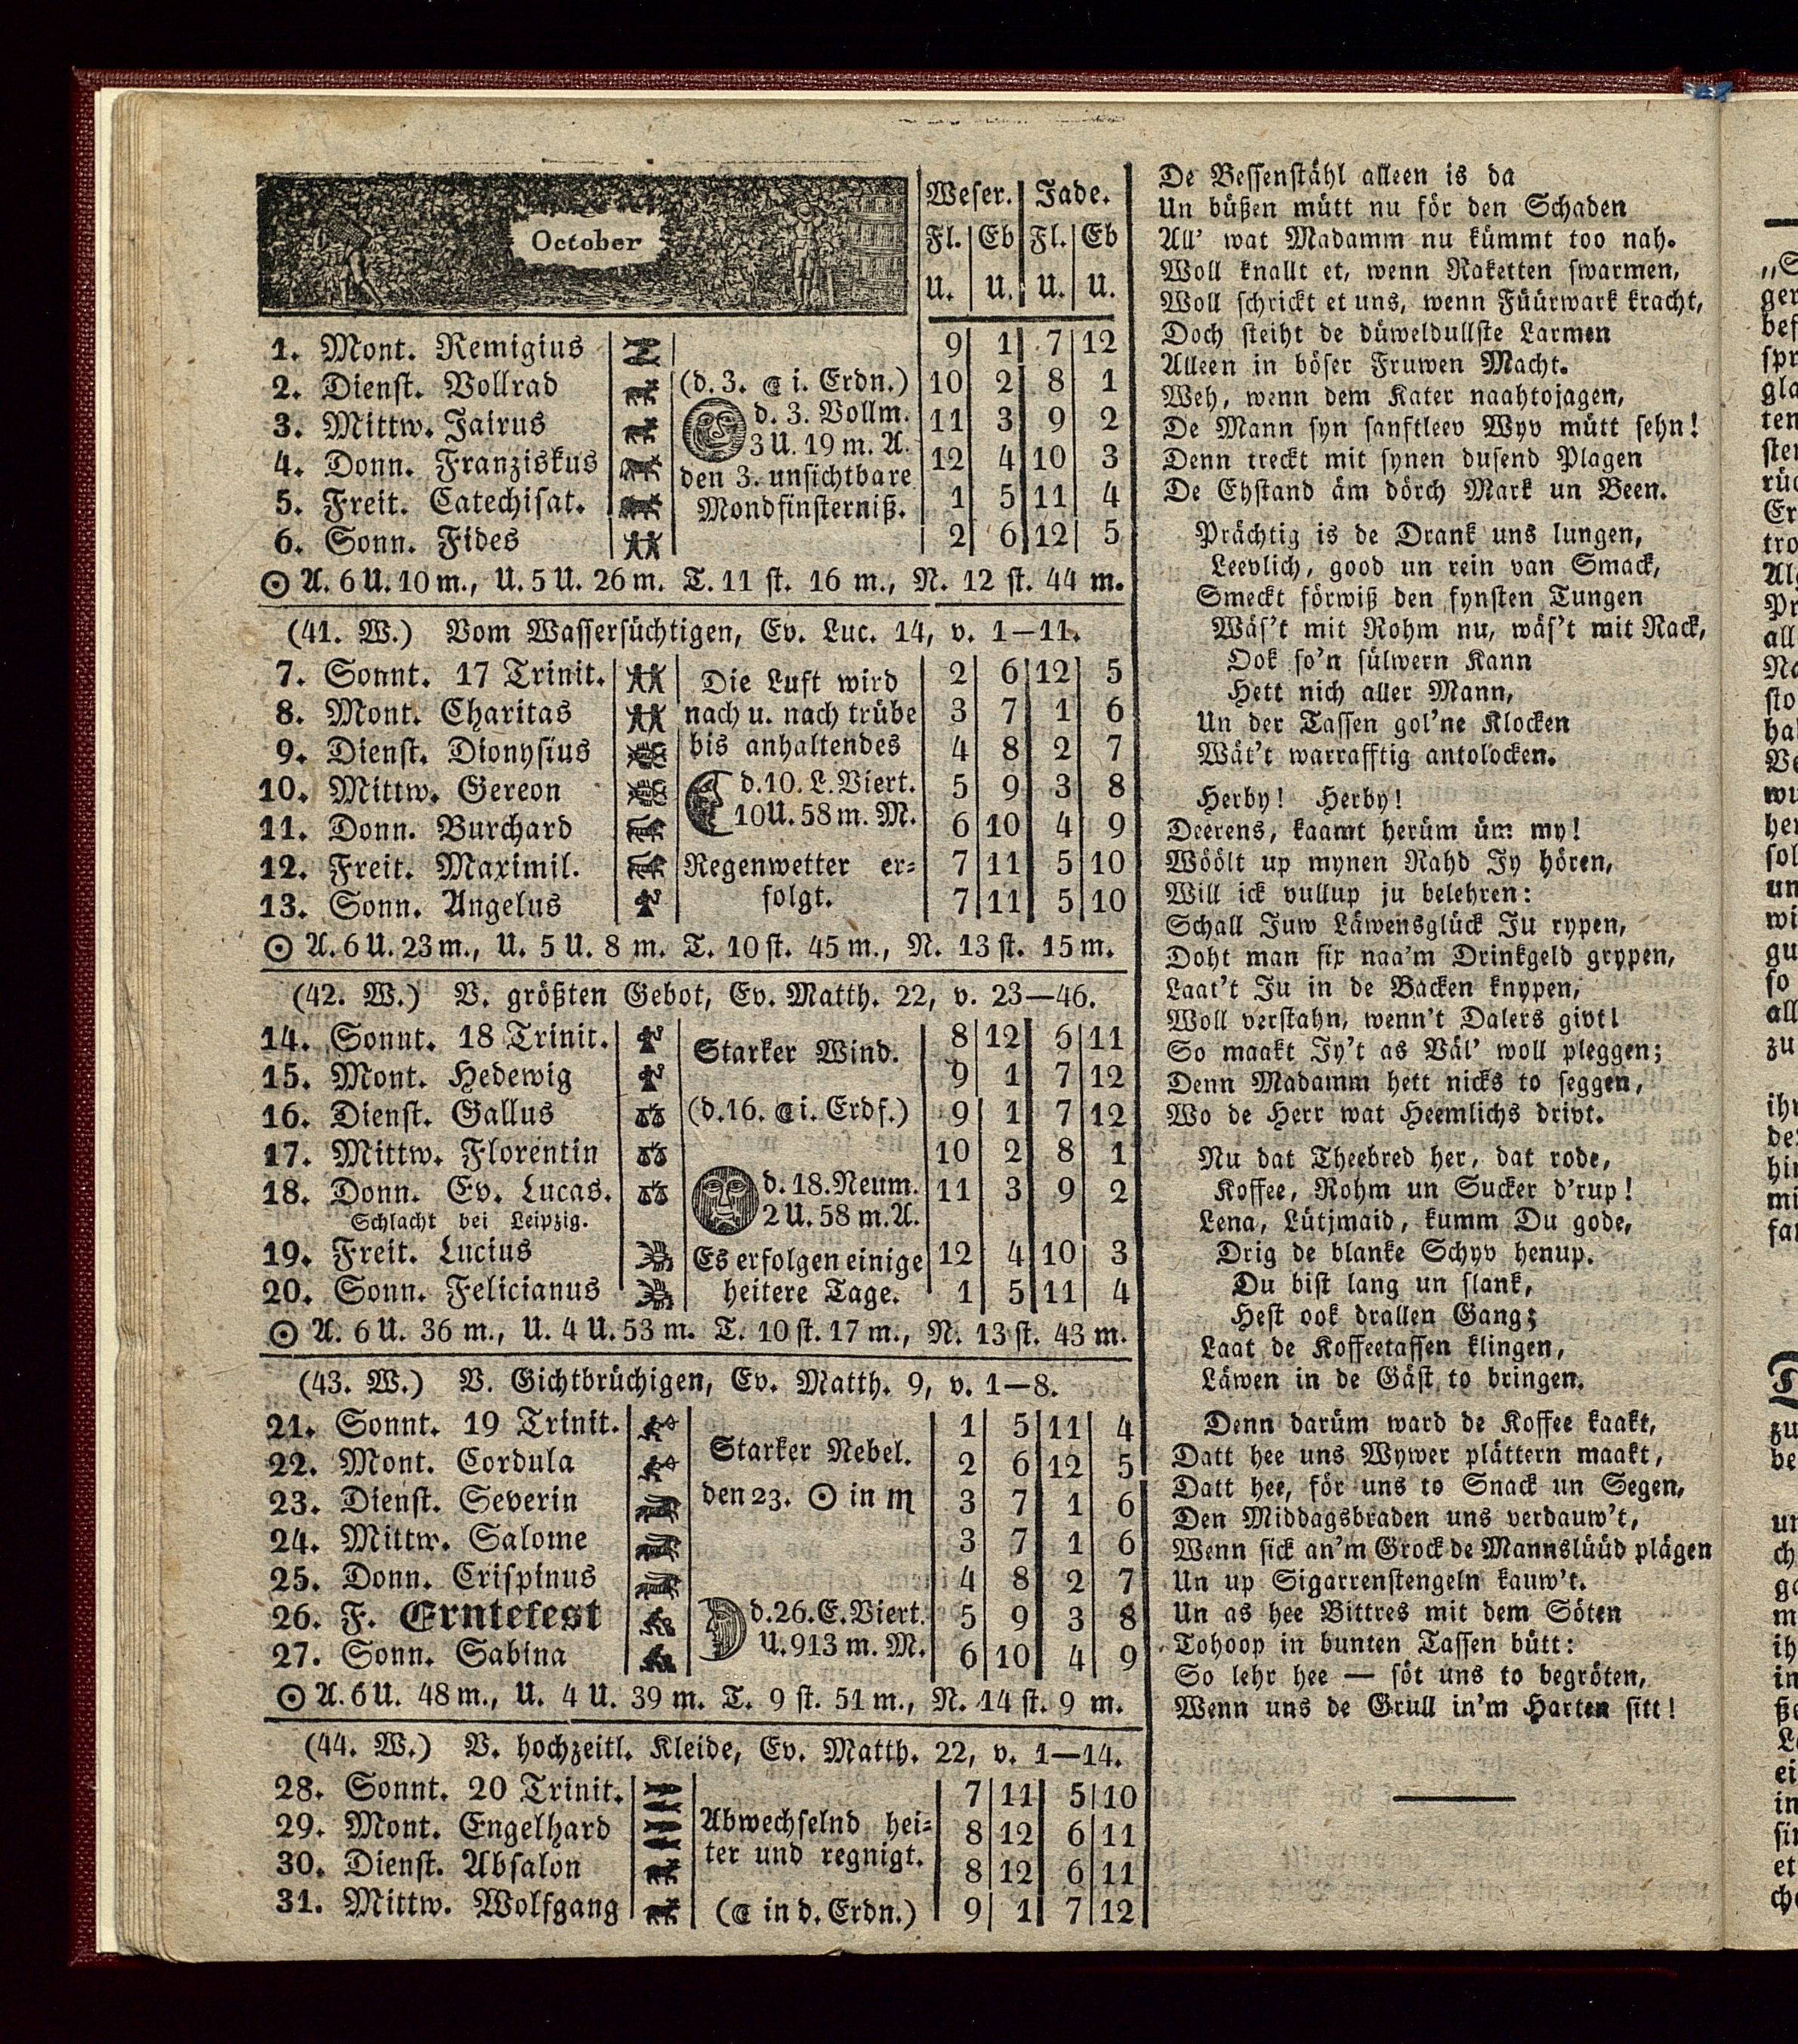 October
Weser. Jade.
Fl. Eb Fl. Eb
U. U. U. U.
1. Mont. Remigius 9 1 7 12
2. Dienst. Vollrad (d. 3. ☾ i. Erdn.) 10 2 8 1
3. Mittw. Jairus d. 3. Vollm. 3 U. 19 m. A. 11 3 9 2
4. Donn. Franziskus den 3. unsichtbare 12 4 10 3
5. Freit. Catechisat. Mondfinsterniß. 1 5 11 4
6. Sonn. Fides 2 6 12 5
☉ A. 6 U. 10 m., U. 5 U. 26 m. T. 11 st. 16 m., N. 12 st. 44 m.
(41. W.) Vom Wassersüchtigen, Ev. Luc. 14, v. 1—11.
7. Sonnt. 17 Trinit. Die Luft wird 2 6 12 5
8. Mont. Charitas nach u. nach trübe 3 7 1 6
9. Dienst. Dionysius bis anhaltendes 4 8 2 7
10. Mittw. Gereon d. 10. L. Viert. 5 9 3 8
11. Donn. Burchard 10 U. 58 m. M. 6 10 4 9
12. Freit. Maximil. Regenwetter er- 7 11 5 10
13. Sonn. Angelus folgt. 7 11 5 10
☉ A. 6 U. 23 m., U. 5 U. 8 m. T. 10 st. 45 m., N. 13 st. 15 m.
(42. W.) V. größten Gebot, Ev. Matth. 22, v. 23—46.
14. Sonnt. 18 Trinit. Starker Wind. 8 12 6 11
15. Mont. Hedewig 9 1 7 12
16. Dienst. Gallus (d. 16. ☾ i. Erdf.) 9 1 7 12
17. Mittw. Florentin 10 2 8 1
18. Donn. Ev. Lucas. d. 18. Neum. 11 3 9 2
Schlacht bei Leipzig. 2 U. 58 m. A.
19. Freit. Lucius Es erfolgen einige 12 4 10 3
20. Sonn. Felicianus heitere Tage. 1 5 11 4
☉ A. 6 U. 36 m., U. 4 U. 53 m. T. 10 st. 17 m., N. 13 st. 43 m.
(43. W.) V. Gichtbrüchigen, Ev. Matth. 9, v. 1—8.
21. Sonnt. 19 Trinit. 1 5 11 4
22. Mont. Cordula Starker Nebel. 2 6 12 5
23. Dienst. Severin den 23. ☉ in ♏ 3 7 1 6
24. Mittw. Salome 3 7 1 6
25. Donn. Crispinus 4 8 2 7
26. F. Erntefest d. 26. E. Viert. 5 9 3 8
27. Sonn. Sabina U. 913 m. M. 6 10 4 9
☉ A. 6 U. 48 m., U. 4 U. 39 m. T. 9 st. 51 m., N. 14 st. 9 m.
(44. W.) V. hochzeitl. Kleide, Ev. Matth. 22, v. 1—14.
28. Sonnt. 20 Trinit. 7 11 5 10
29. Mont. Engelhard Abwechselnd hei- 8 12 6 11
30. Dienst. Absalon ter und regnigt. 8 12 6 11
31. Mittw. Wolfgang (☾ in d. Erdn.) 9 1 7 12
De Bessenstähl alleen is da
Un büßen mütt nu för den Schaden
All' wat Madamm nu kümmt too nah.
Woll knallt et, wenn Raketten swarmen,
Woll schrickt et uns, wenn Füürwark kracht,
Doch steiht de düweldullste Larmen
Alleen in böser Fruwen Macht.
Weh, wenn dem Kater naahtojagen,
De Mann syn sanftleev Wyv mütt sehn!
Denn treckt mit synen dusend Plagen
De Ehstand äm dörch Mark un Been.
Prächtig is de Drank uns lungen,
Leevlich, good un rein van Smack,
Smeckt förwiß den fynsten Tungen
Wäs't mit Rohm nu, wäs't mit Rack,
Ook so'n sülwern Kann
Hett nich aller Mann,
Un der Tassen gol'ne Klocken
Wät't warrafftig antolocken.
Herby! Herby!
Deerens, kaamt herüm üm my!
Wöölt up mynen Rahd Jy hören,
Will ick vullup ju belehren:
Schall Juw Läwensglück Ju rypen,
Doht man fix naa'm Drinkgeld grypen,
Laat't Ju in de Backen knypen,
Woll verstahn, wenn't Dalers givt!
So maakt Jy't as Väl' woll pleggen;
Denn Madamm hett nicks to seggen,
Wo de Herr wat Heemlichs drivt.
Nu dat Theebred her, dat rode,
Koffee, Rohm un Sucker d'rup!
Lena, Lütjmaid, kumm Du gode,
Drig de blanke Schyv henup.
Du bist lang un slank,
Hest ook drallen Gang;
Laat de Koffeetassen klingen,
Läwen in de Gäst to bringen.
Denn darüm ward de Koffee kaakt,
Datt hee uns Wywer plättern maakt,
Datt hee, för uns to Snack un Segen,
Den Middagsbraden uns verdauw't,
Wenn sick an'm Grock de Mannslüüd plägen
Un up Sigarrenstengeln kauw't.
Un as hee Bittres mit dem Söten
Tohoop in bunten Tassen bütt:
So lehr hee — söt uns to begröten,
Wenn uns de Grull in'm Harten sitt!